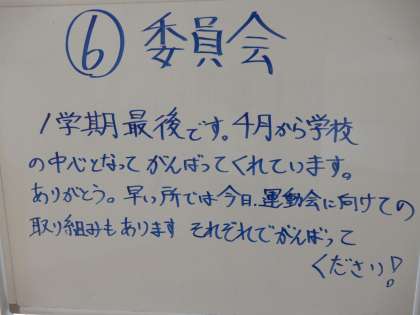 ⑥ 委員会
1学期最後です。4月から学校
の中心となってがんばってくれています。
ありがとう。早い所では今日、運動会に向けての
取り組みもあります それぞれでがんばって
ください!